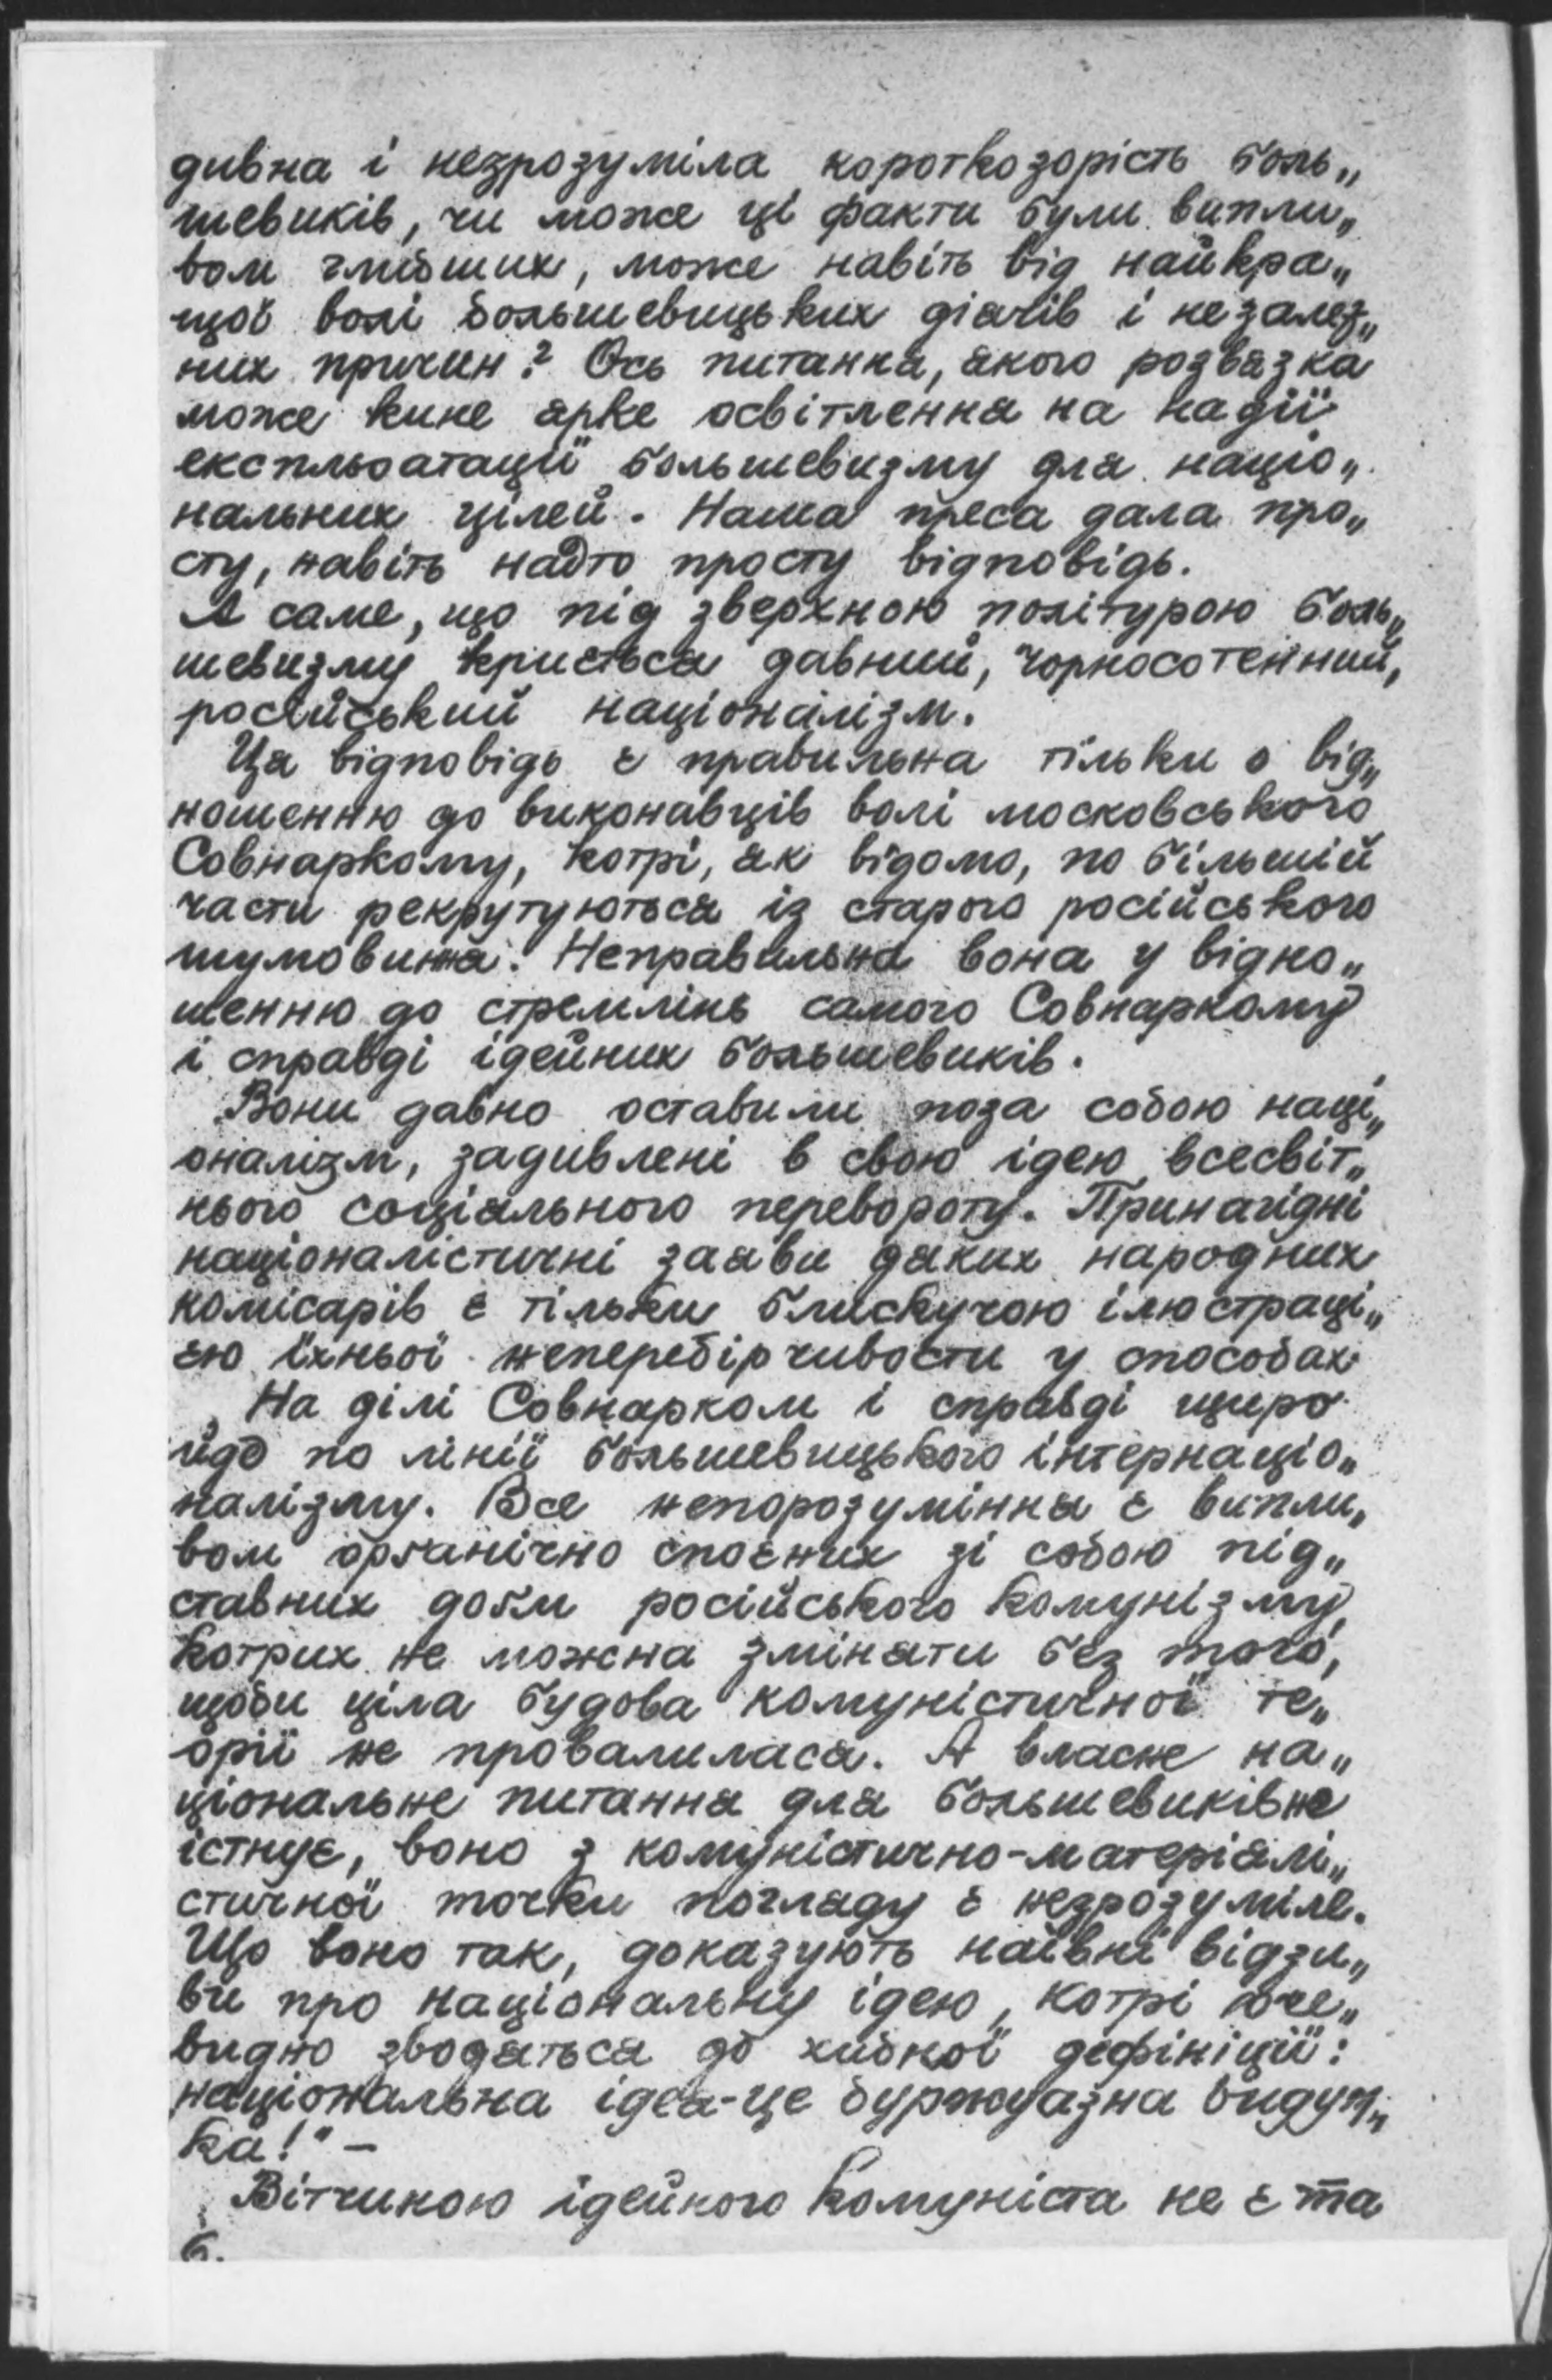 дивна і незрозуміла короткозорість боль„
шевиків, чи може ці факти були випли„
вом глибших, може навіть від найкра„
щої волі большевицьких діячів і незалеж„
них причин? Ось питання, якого розвязка
може кине ярке освітлення на надії
експльоатації большевизму для націо„
нальних цілей. Наша преса дала про„
сту, навіть надто просту відповідь.
А саме, що під зверхною політурою боль„
шевизму криється давний, чорносотенний,
російський націоналізм.
Ця відповідь є правильна тільки о від„
ношенню до виконавців волі московського
Совнаркому, котрі, як відомо, по більшій
части рекрутуються із старого російського
шумовиння. Неправильна вона у відно„
шенню до стремлінь самого Совнаркому
і справді ідейних большевиків.
Вони давно оставили поза собою наці„
оналізм, задивлені в свою ідею всесвіт„
нього соціального перевороту. Принагідні
націоналістичні заяви деяких народних
комісарів є тільки блискучою ілюстраці„
єю їхньої неперебірчивости у способах
На ділі Совнарком і справді щиро
йде по лінії большевицького інтернаціо„
налізму. Все непорозуміння є випли„
вом органічно споєних зі собою під„
ставних догм російського комунізму,
котрих не можна зміняти без того,
щоби ціла будова комуністичної те„
орії не провалилася. А власне на„
ціональне питання для большевиків не
істнує, воно з комуністично-матеріялі„
стичної точки погляду є незрозуміле.
Що воно так, доказують наівні відзи„
ви про національну ідею, котрі оче„
видно зводяться до хибної дефініції:
національна ідея-це буржуазна видум„
ка!" –
Вітчиною ідейного комуніста не є та
6.